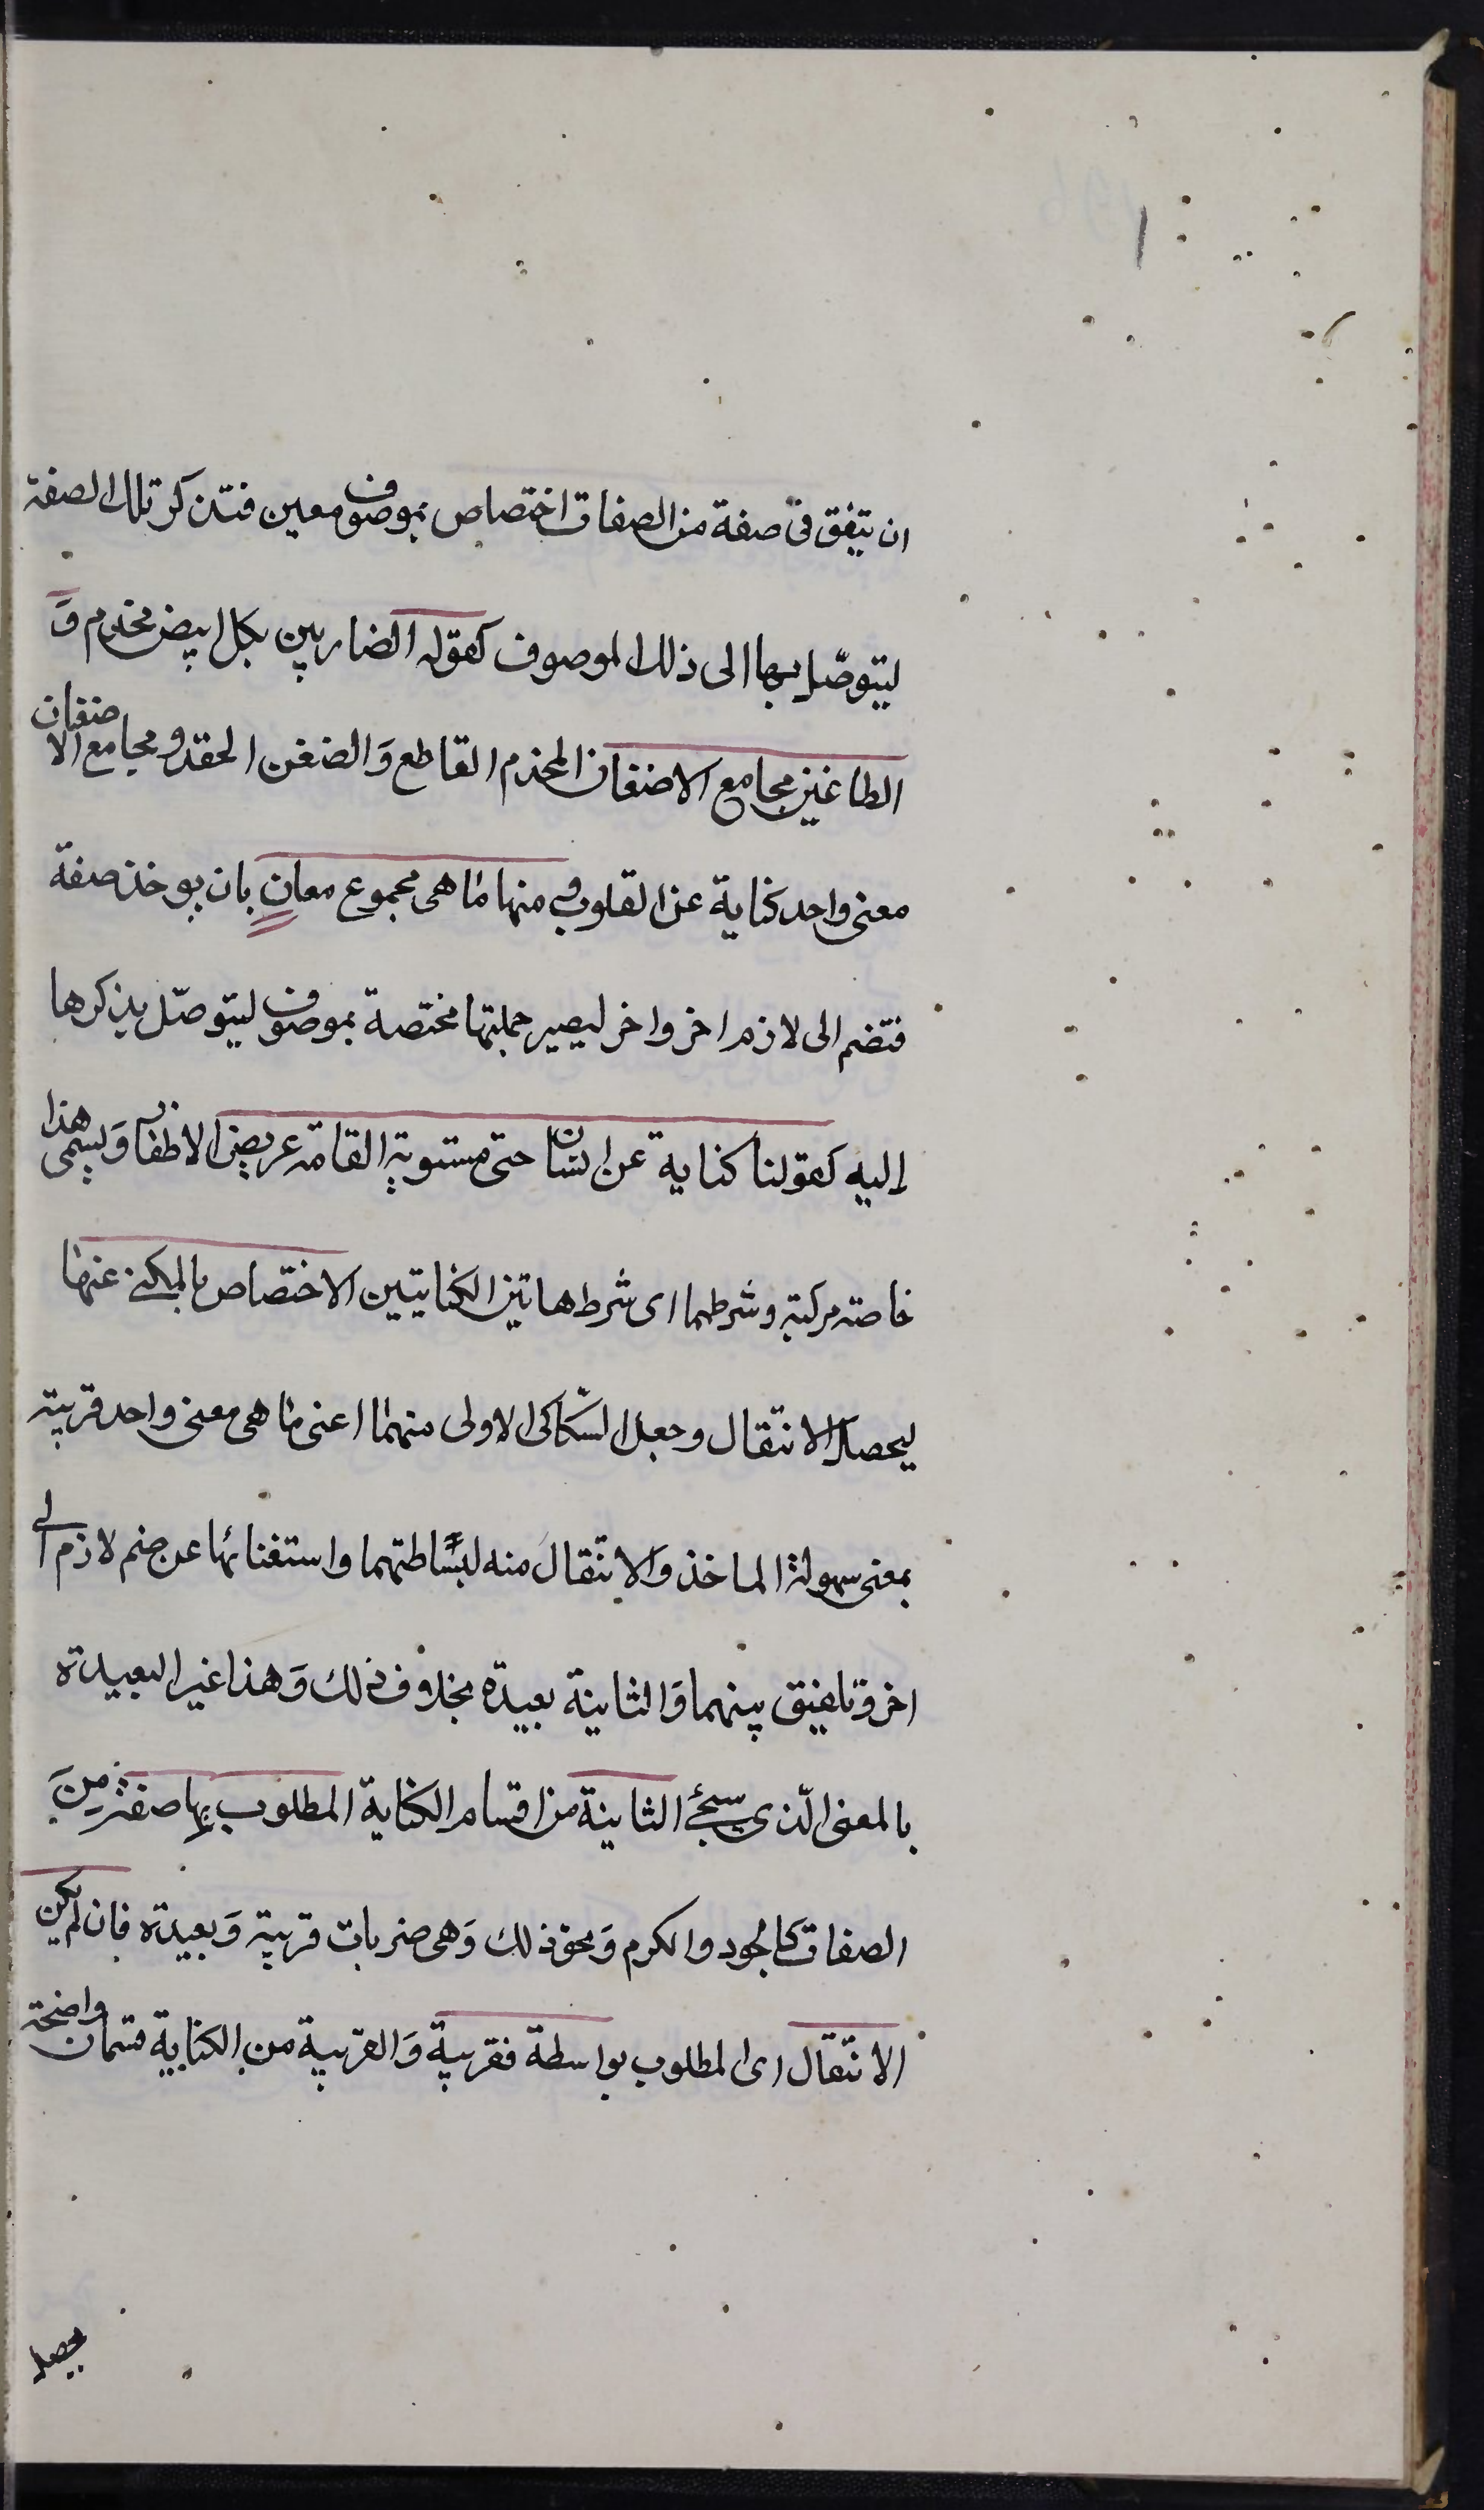 ان يتفق فى صفة من الصفات اختصاص بموصوف معين فتذكر تلك الصفة
ليتوصّل بها الى ذلك الموصوف كقوله الضاربين بكل ابيض مخذم وَ
الطاغين مجامع الاضغان المخذم القاطع وَالضغن الحقد و مجامع الاضغان
معنى واحد كناية عن القلوب و منها ما هى مجموع معانٍ بان يوخذ صفة
فتضم الى لازم اخر واخر ليصير جملتها مختصة بموصوف ليتوصّل بذكرها
إليه كقولنا كناية عن انسان حتى مستوية القامة عريض الاظفار وَيسمى هذا
خاصة مركبة وشرطهما اى شرط هاتين الكنايتين الاختصاص بالمكنى عنهما
ليحصل الانتقال وجعل السّكاكى الاولى منهما اعنى ما هى معنى واحد قريبة
بمعنى سهولة الماخذ وَالانتقال منه لبساطتهما واستغنائها عن ضم لازم الى
اخر وتلفيق بينهما وَالثانية بعيدة بخلاف ذلك وَهذا غير البعيدة
بالمعنى الّذى سيجئ الثانية من اقسام الكناية المطلوب بها صفة مِنَ
الصفات كالجود والكرم وَنحو ذلك وَهى ضربان قريبة وَبعيدة فان لم يكن
الانتقال اى المطلوب بواسطة فقريبة وَالقريبة من الكناية قسمان واضحة
يحصل